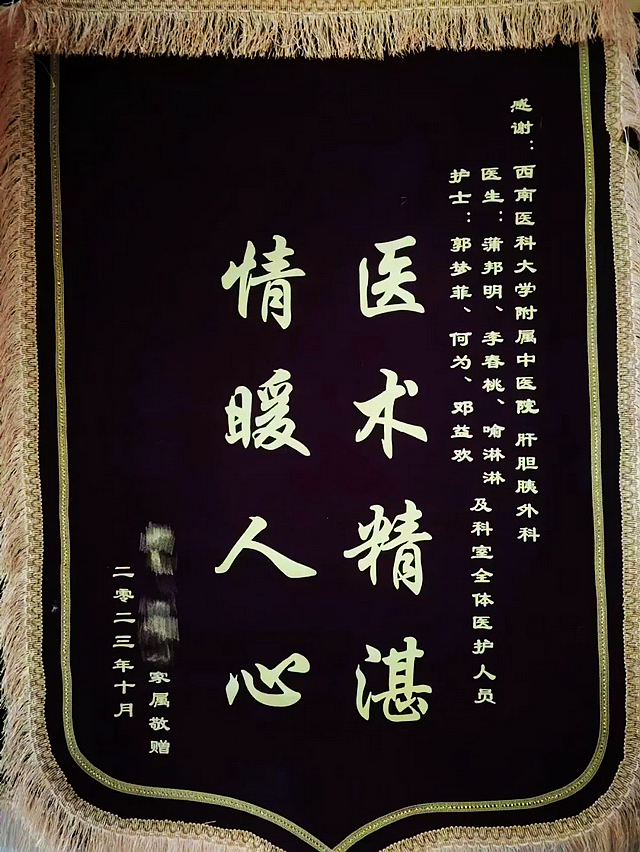 感谢：西南医科大学附属中医院 肝胆胰外科
医生：蒲邦明、李春桃、喻淋淋
护士：郭梦菲、何为、邓益欢
及科室全体医护人员
医术精湛
情暖人心
家属敬赠
二零二三年十月